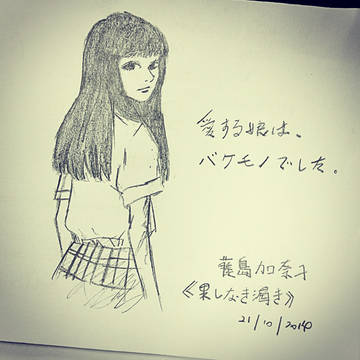 愛する娘は、
バケモノでした。
藤島加奈子
《果しなき渇き》
21/10/2014